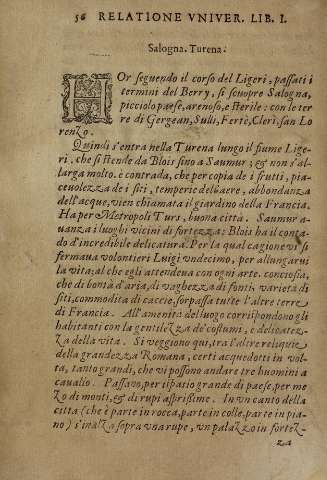 56 RELATIONE VNIVER. LIB. I.
Salogna. Turena.
HOr seguendo il corso del Ligeri, passati i
termini del Berry, si scuopre Salogna,
picciolo paese, arenoso, e sterile: con le ter
re di Gergean, Sulli, Fertè, Cleri, san Lo
renzo.
Quindi s'entra nella Turena lungo il fiume Lige-
ri, che si stende da Blois sino a Saumur; & non s'al-
larga molto. è contrada, che per copia de i frutti, pia-
ceuolezza de i siti, temperie dell'aere, abbondanza
dell'acque, vien chiamata il giardino della Francia.
Ha per Metropoli Turs, buona città. Saumur a-
uanza i luoghi vicini di fortezza: Blois ha il conta-
do d'incredibile delicatura. Per la qual cagione vi si
fermaua volontieri Luigi vndecimo, per allungarui
la vita; al che egli attendeua con ogni arte. conciosia,
che di bontà d'aria, di vaghezza di fonti, varietà di
siti, commodita di caccie, sorpassa tutte l'altre terre
di Francia. All'amenità del luogo corrispondono gli
habitanti con la gentilezza de' costumi, e delicatez-
za della vita. Si veggiono qui, tra l'altre reliquie
della grandezza Romana, certi acquedotti in vol-
ta, tanto grandi, che vi possono andare tre huomini a
cauallo. Passauo, per ispatio grande di paese, per me
zo di monti, & di rupi asprissime. In vn canto della
città (che è parte in rocca, parte in colle, parte in pia-
no) s'inalza sopra vna rupe, vn palazzo in fortez-
za